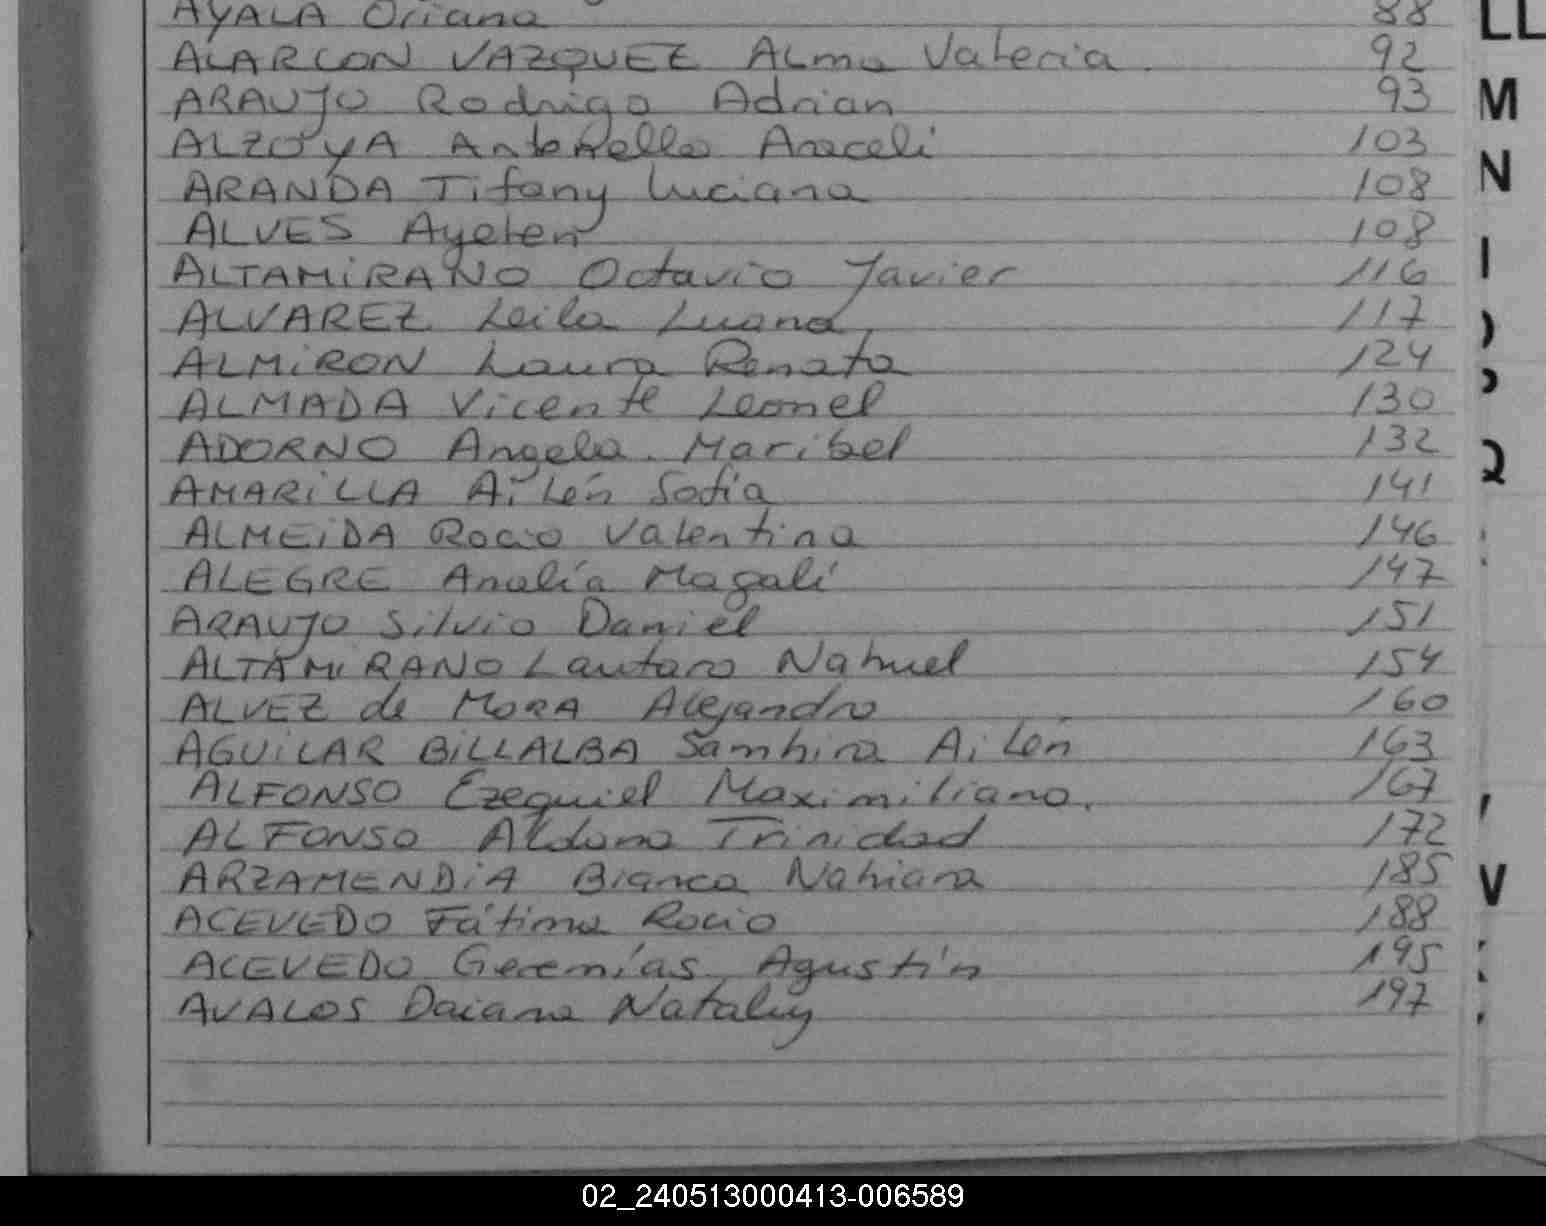 AYALA Oriana 88
ALARCON VAZQUEZ ALma Valeria. 92
ARAUJO Rodrigo Adrian 93
ALZOYA Antonella Araceli 103
ARANDA Tifany Luciana 108
ALVES Ayelen 108
ALTAMiRANO Octavio Javier 116
ALVAREZ Leila Luana 117
ALMiRON Laura Renata 124
ALMADA Vicente Leonel 130
ADORNO Angela Maribel 132
AMARiLLA Ailén Sofia 141
ALMEiDA Rocio Valentina 146
ALEGRE Analía Magalí 147
ARAUJO Silvio Daniel 151
ALTAMiRANO Lautaro Nahuel 154
ALVEZ de MORA Alejandro 160
AGUiLAR BiLLALBA Samhira AiLén 163
ALFONSO Ezequiel Maximiliano. 167
ALFONSO Aldana Trinidad 172
ARZAMENDiA Bianca Nahiara 185
ACEVEDO Fátima Rocio 188
ACEVEDO Geremías Agustín 195
AVALOS Daiana Nataly 197
LL
M
N
Q
V
02_240513000413-006589